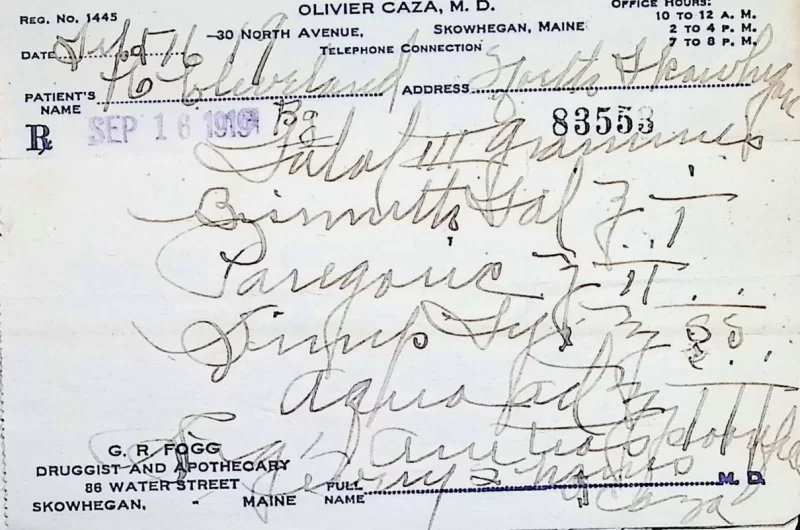 REG. NO. 1445
OLIVIER CAZA, M. D.
OFFICE HOURS:
10 TO 12 A. M.
2 TO 4 P. M.
7 TO 8 P. M.
30 NORTH AVENUE, SKOWHEGAN, MAINE
TELEPHONE CONNECTION
DATE Sept 16 19
PATIENT'S NAME Cleveland ADDRESS South Skowhegan
℞ SEP 16 1919 83553
Salol III grammes
Bismuth Sal ʒ I
Paregoric ʒ II
Simple Syr ʒ ss
Aqua ad ʒ III
Sig
every 2 hours
G. R. FOGG
DRUGGIST AND APOTHECARY
86 WATER STREET
SKOWHEGAN, - MAINE
FULL NAME Caza M. D.